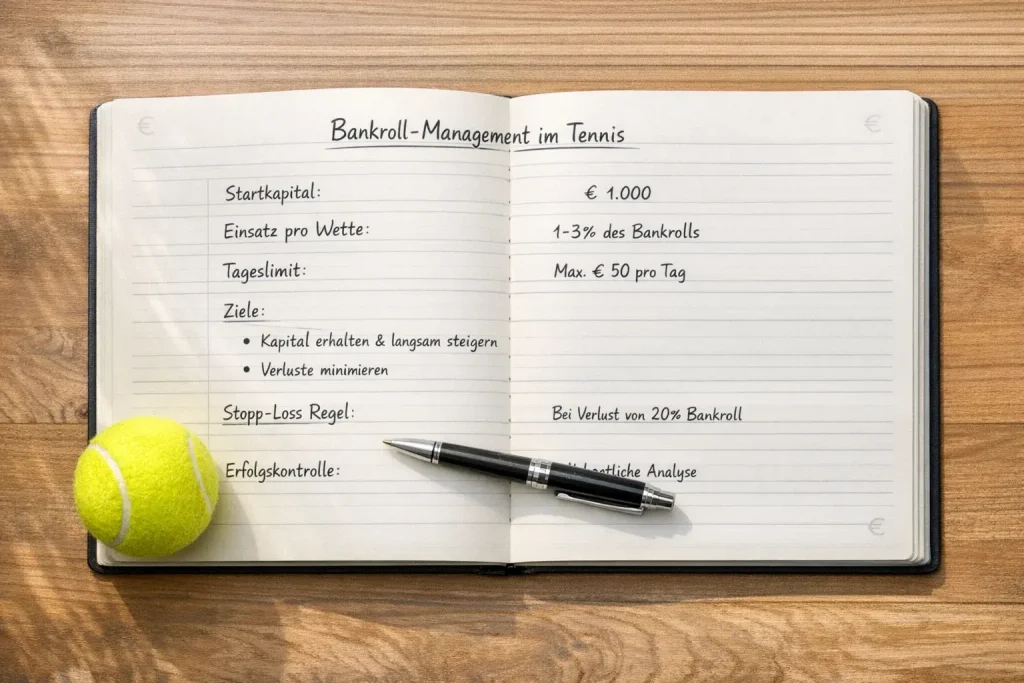 €
€
Bankroll-Management im Tennis
Startkapital: € 1.000
Einsatz pro Wette: 1-3% des Bankrolls
Tageslimit: Max. € 50 pro Tag
Ziele:
• Kapital erhalten & langsam steigern
• Verluste minimieren
Stopp-Loss Regel: Bei Verlust von 20% Bankroll
Erfolgskontrolle: Analyse
€